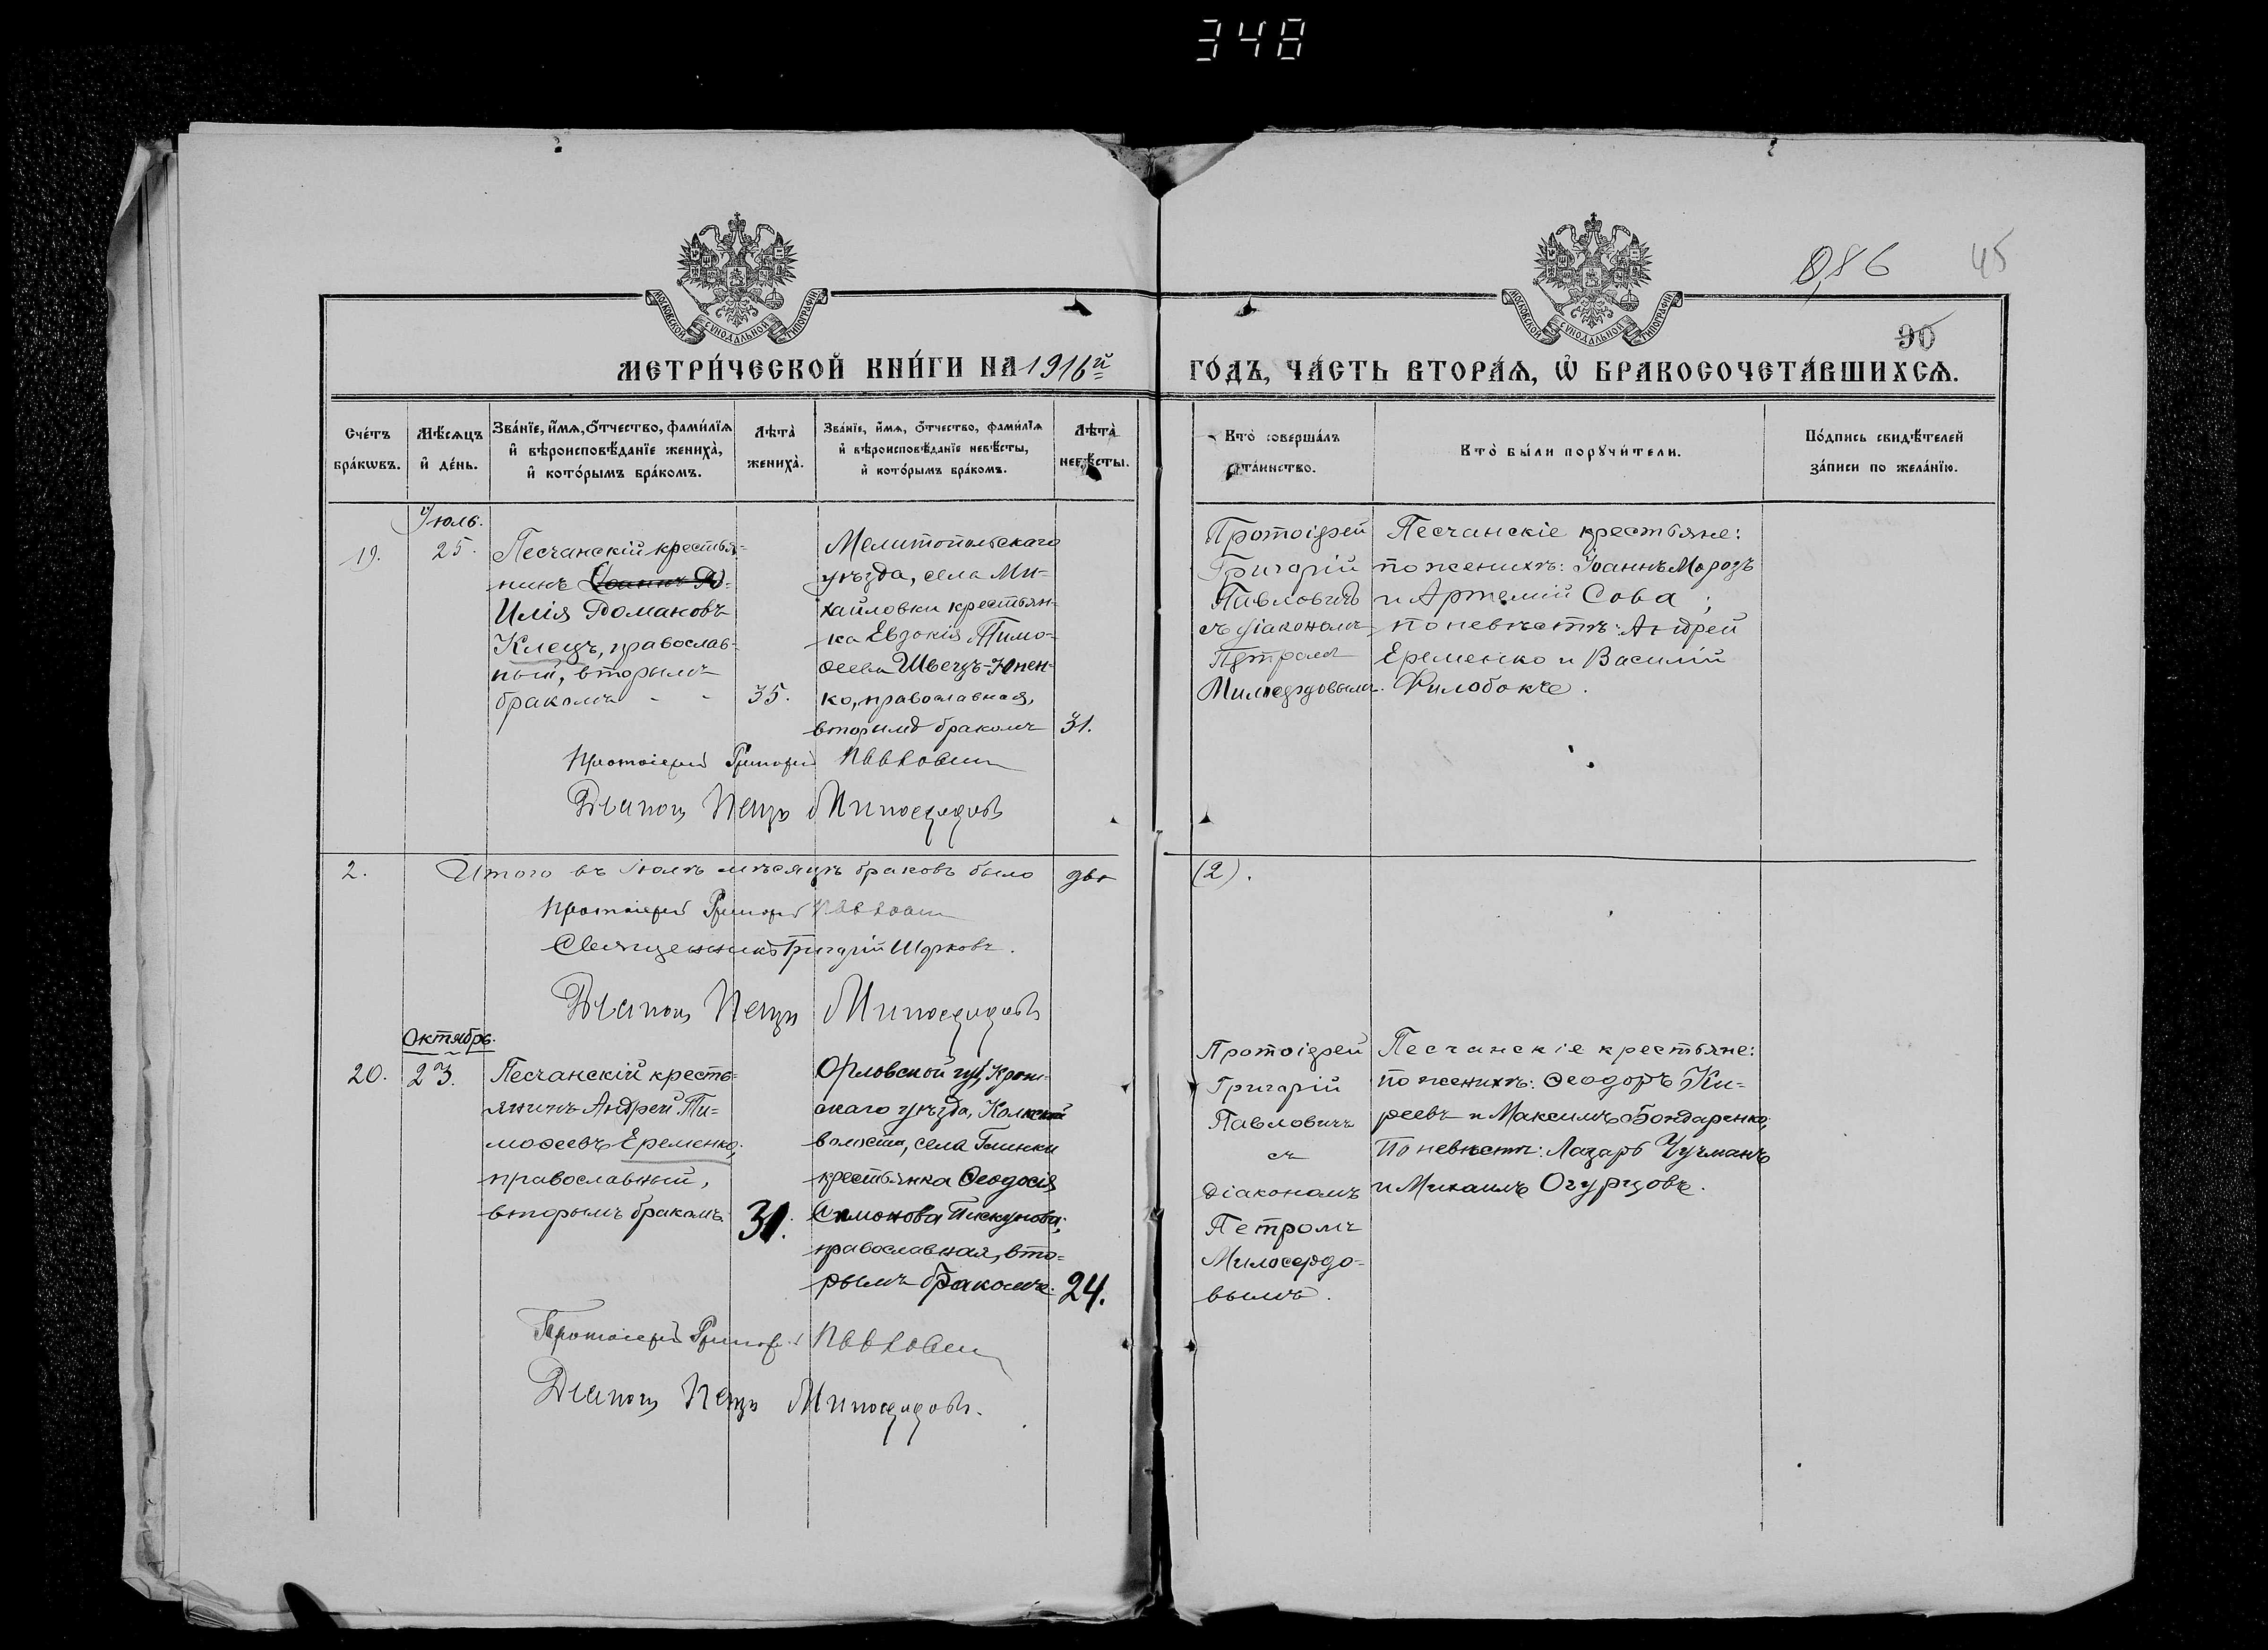 348
0,86
45
90
МОСКОВСКОЙ СѴНОДАЛЬНОЙ ТИПОГРАФІИ
МОСКОВСКОЙ СѴНОДАЛЬНОЙ ТИПОГРАФІИ
МЕТРИ́ЧЕСКОЙ КНИ́ГИ НА 1916й ГО́ДЪ, ЧА́СТЬ ВТОРА́Ѧ, Ѡ҆ БРАКОСОЧЕТА́ВШИХСѦ.
Сче́тъ
бра́кѡвъ.
Мѣ́сѧцъ
и҆ де́нь.
Зва́нїе, и҆́мѧ, о҆́тчество, фами́лїѧ
и҆ вѣроисповѣ́данїе жениха̀,
и҆ кото́рымъ бра́комъ.
Лѣта̀
жениха̀.
Зва́нїе, и҆́мѧ, о҆́тчество, фами́лїѧ
и҆ вѣроисповѣ́данїе невѣ́сты,
и҆ кото́рымъ бра́комъ.
Лѣта̀
невѣ́сты.
Кто̀ соверша́лъ
та́инство.
Кто̀ бы́ли порꙋчи́тели.
По́дпись свидѣ́телей
за́писи по жела́нїю.
19.
Іюль.
25.
Песчанскій крестья-
нинъ Іоаннъ Ро-
Илія Романовъ
Клецъ, православ-
ный, вторымъ
бракомъ - -
35.
Мелитопольскаго
уѣзда, села Ми-
хайловки крестьян-
ка Евдокія Тимо-
ѳеева Швецъ-Юнен-
ко, православная,
вторымъ бракомъ
31.
Протоіерей
Григорій
Павловичъ
съ діакономъ
Петромъ
Милосердовымъ.
Песчанскіе крестьяне:
по женихѣ: Іоаннъ Морозъ
и Артемій Сова;
по невѣстѣ: Андрей
Еременко и Василій
Филобокъ.
Протоіерей Григорій Павловичъ
Діаконъ Петръ Милосердовъ
2. Итого въ Іюлѣ мѣсяцѣ браковъ было два (2).
Протоіерей Григорій Павловичъ
Священникъ Григорій
Діаконъ Петръ Милосердовъ
20.
Октябрь.
23.
Песчанскій кресть-
янинъ Андрей Ти-
моѳеевъ Еременко,
православный,
вторымъ бракомъ.
31.
Орловской губ, Кром-
скаго уѣзда,
волости, села Глинки
крестьянка Ѳеодосія
Симонова Пискунова,
православная, вто-
рымъ бракомъ.
24.
Протоіерей
Григорій
Павловичъ
съ
діакономъ
Петромъ
Милосердо-
вымъ.
Песчанскіе крестьяне:
по женихѣ: Ѳеодоръ Ки-
реевъ и Максимъ Бондаренко,
по невѣстѣ: Лазарь Чучманъ
и Михаилъ Огурцовъ.
Протоіерей Григорій Павловичъ
Діаконъ Петръ Милосердовъ.